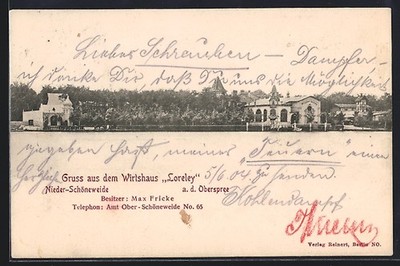 Liebes Schrauben-Dampfer-
ich danke Dir, daß Du uns die Möglichkeit
gegeben hast, meines "Teuern" einen
Herzlich
Gruss aus dem Wirtshaus „Loreley"
Nieder-Schöneweide a. d. Oberspree
Besitzer: Max Fricke
Telephon: Amt Ober-Schöneweide No. 65
5/6 04 zu senden
Kohlendampf
Verlag Reinert, Berlin NO.